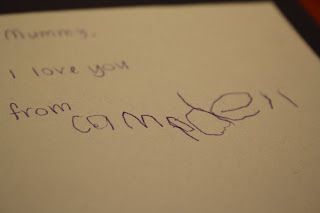 Mummy,
I love you
from campbell